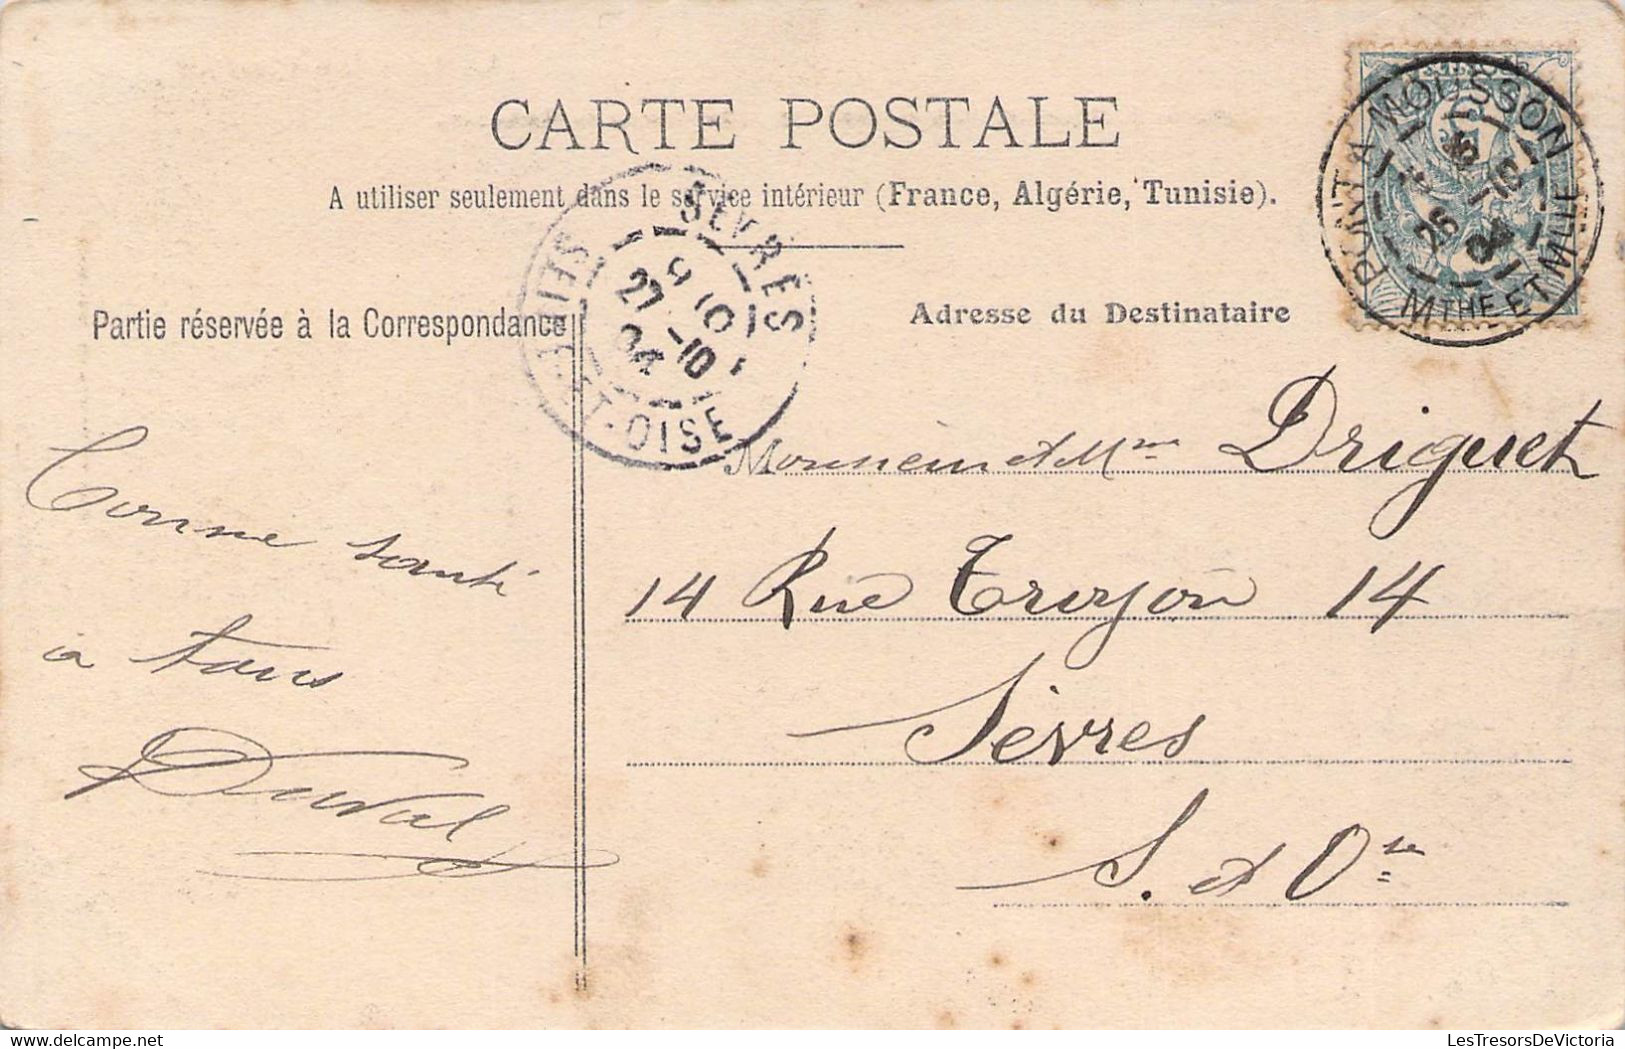 CARTE POSTALE
A utiliser seulement dans le service intérieur (France, Algérie, Tunisie).
Partie réservée à la Correspondance
Adresse du Destinataire
PONT A MOUSSON
26 -10
04
MTHE ET MLLE
SEVRES
9 10
27 -10
04
SEINE-ET-OISE
Bonne santé
à tous
Duval
Monsieur et Mme Driguet
14 Rue Troyon 14
Sèvres
S. et Oise
LesTresorsDeVictoria